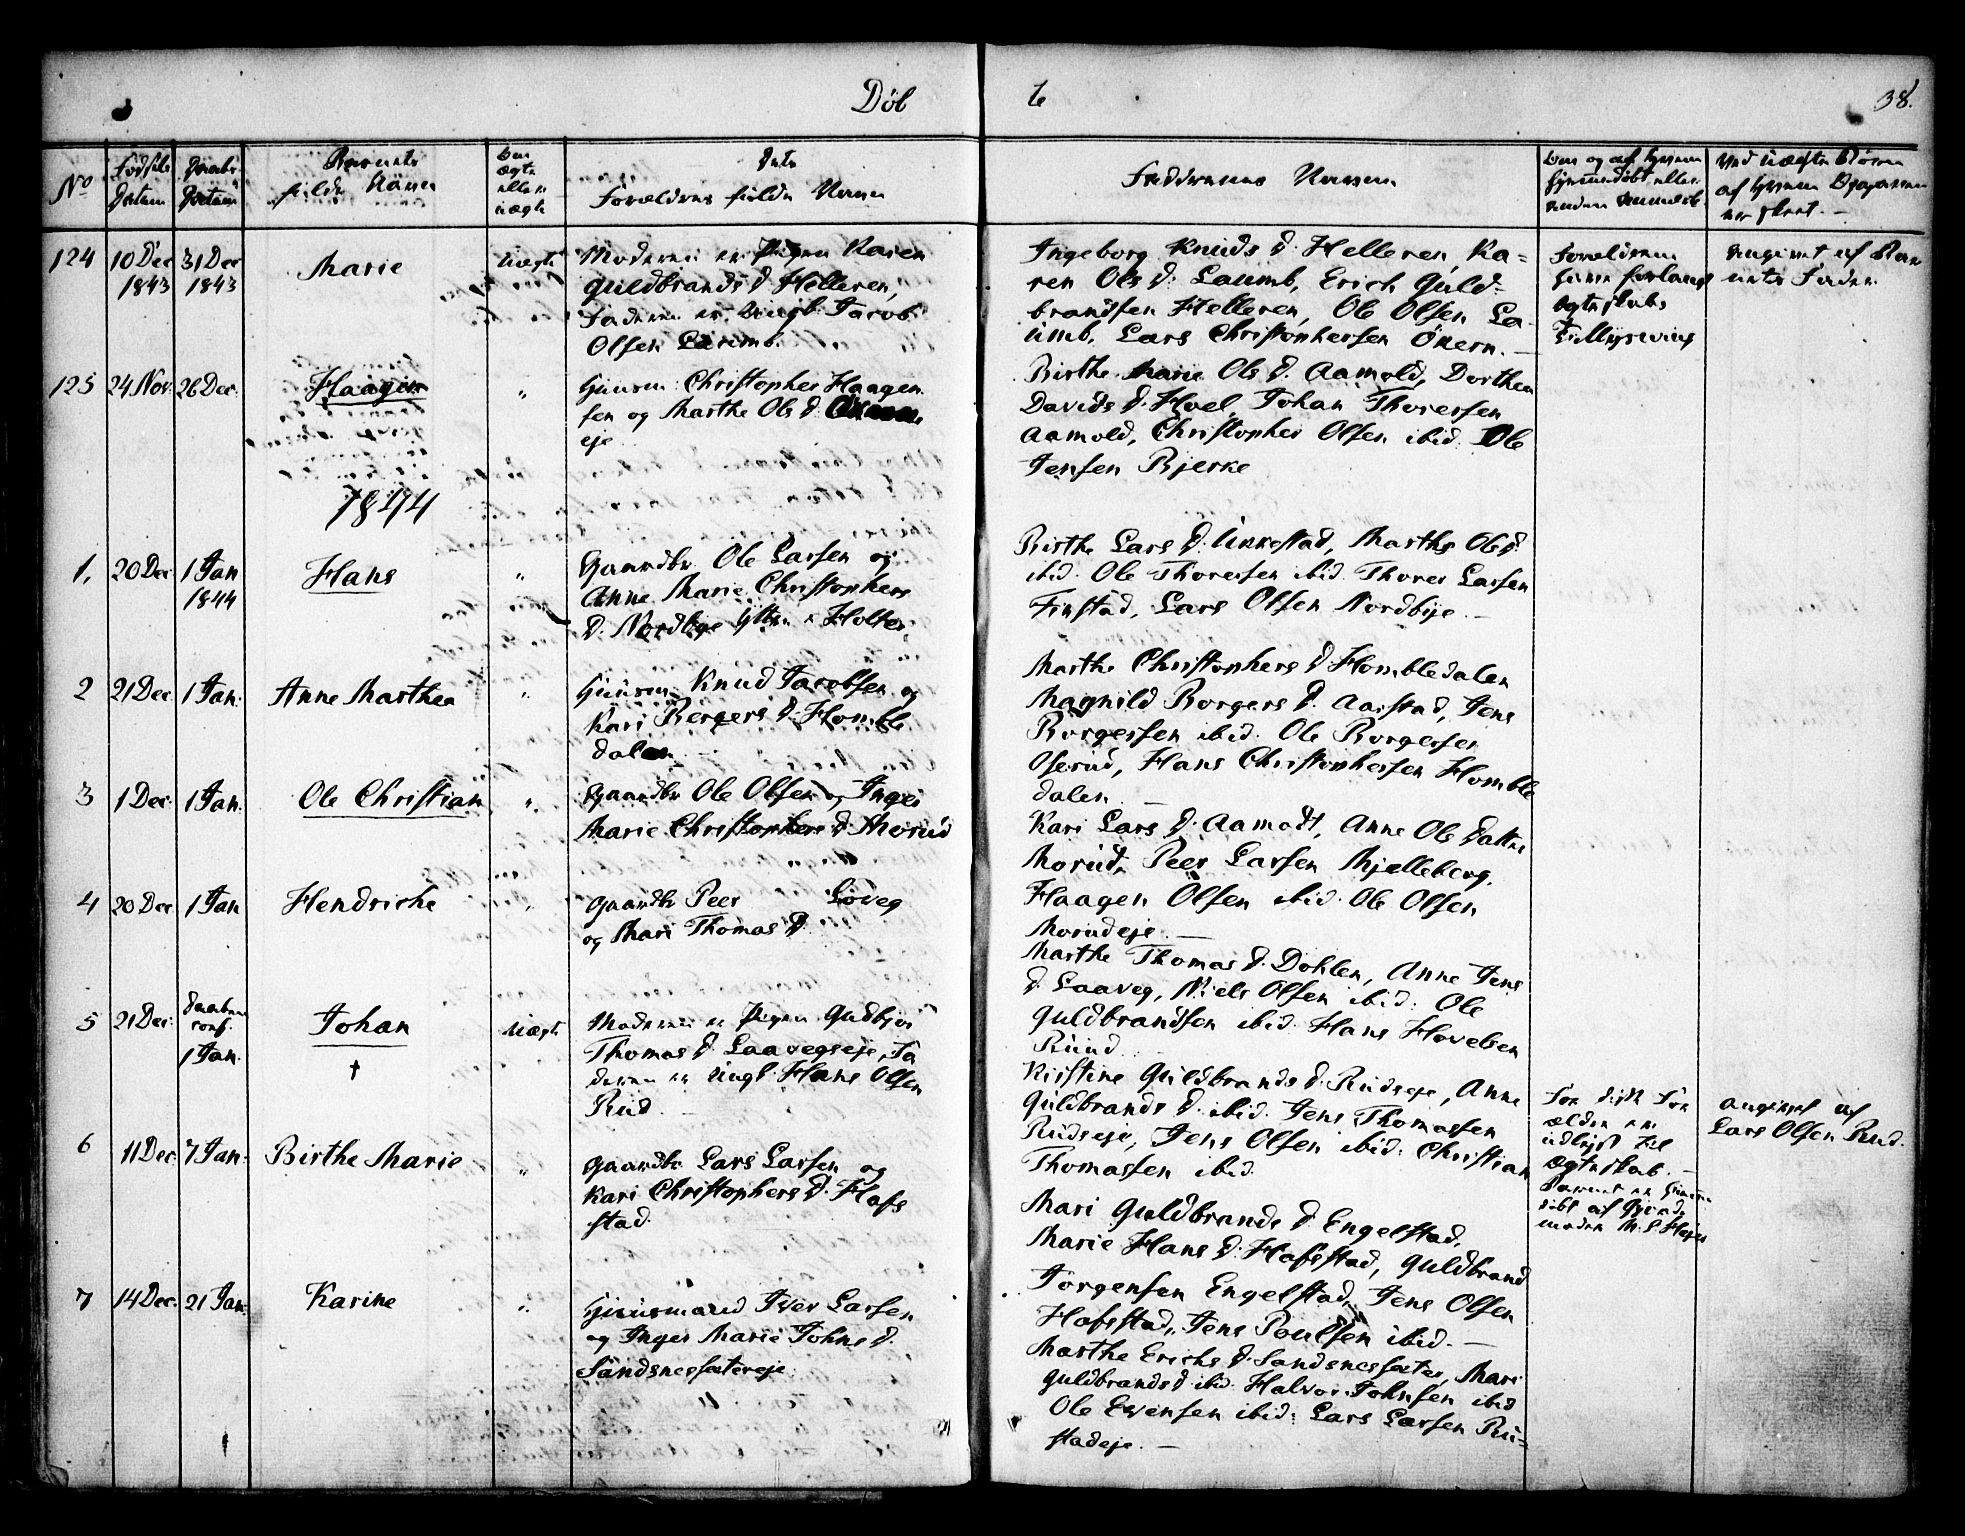 Døb
t
38.
No
Fødsels
Datum
Daabs
Datum
Barnets
fulde Navn
Om
ægte
eller
uægte
Dets
Forældres fulde Navn
Faddernes Navn
Om og af hvem
hjemmedøbt eller
Ved Uægte Børn
af hvem Opgaven
er skeet.
124
10 Dec
1843
31 Dec
1843
Marie
Uægte
Moderen er Pigen Karen
Guldbrands D. Helleren,
Faderen er Ungk. Jacob
Olsen Laumb.
Ingeborg Knuds D. Helleren Ka=
ren Ols D. Laumb, Erich Guld-
brandsen Helleren, Ole Olsen La-
umb, Lars Christophersen Økern.
Forældrene
have forlang
Ægteskabs
Tillysning
Angivet af Bar
nets Fader
125
24 Nov.
26 Dec.
Haagen
"
Huusm: Christopher Haagen
sen og Marthe Ols D.
eje
Birthe Marie Ols D. Aamold, Dorthea
Davids D. Hoel, Johan Thoresen
Aamold, Christopher Olsen ibid. Ole
Jensen Bjerke
1844
1,
20 Dec
1 Jan
1844
Hans
"
Gaardbr Ole Larsen og
Anne Marie Christophers
D. Nordbye Ytter Holter
Birthe Lars D. Unkestad, Marthe Ols D.
ibid. Ole Thoresen ibid. Thores Larsen
Finstad, Lars Olsen Nordbye.
2
21 Dec.
1 Jan.
Anne Marthea
"
Huusm. Knud Jacobsen og
Kari Borgers D. Homble
dalen
Marthe Christophers D. Hombledalen
Magnild Borgers D. Aarstad, Jens
Borgersen ibid. Ole Borgersen
Oserud, Hans Christophersen Homble
dalen
3
1 Dec.
1 Jan.
Ole Christian
"
Gaardbr Ole Olsen og Inger
Marie Christophers D. Morud
Kari Lars D. Aamodt, Anne Ols Datter
Morud, Peer Larsen Mjelleberg.
Haagen Olsen ibid. Ole Olsen
Morudeje.
4
20 Dec
1 Jan
Hendriche
"
Gaardbr Peer Løveg
og Mari Thomas D.
Marthe Thomas D. Dohlen, Anne Jens
D. Laaveg, Niels Olsen ibid. Ole
Guldbrandsen ibid. Hans Hovelsen
Ruud
5
21 Dec.
Daaben
conf.
1 Jan.
Johan
†
Uægte
Moderen er Pigen Gudbjør
Thomas D. Laavegseje, Fa
deren er Ungk. Hans Olsen
Rud.
Kirstine Guldbrands D. Rudseje, Anne
Guldbrands D. ibid. Jens Thomassen
Rudseje, Jens Olsen ibid. Christian
Thomassen ibid.
For disse For
ældre er
udlyst til
Ægteskab.
Barnet er hjemme
døbt af Gjord
moder M. S. Hajer
Angivet af
Lars Olsen Rud.
6
11 Dec
7 Jan.
Birthe Marie
"
Gaardbr Lars Larsen og
Kari Christophers D. Hafs
stad.
Mari Guldbrands D. Engelstad,
Marie Hans D. Hafsstad, Guldbrand
Jørgensen Engelstad, Jens Olsen
Hafsstad, Jens Poulsen ibid.
7
14 Dec.
21 Jan.
Karine
"
Huusmand Iver Larsen
og Inger Marie Johns D.
Sandsnessætereje
Marthe Erichs D. Sandsnessæter, Mari
Guldbrands D ibid. Halvor Johnsen ibid
Ole Evensen ibid. Lars Larsen Ru=
stadeje.